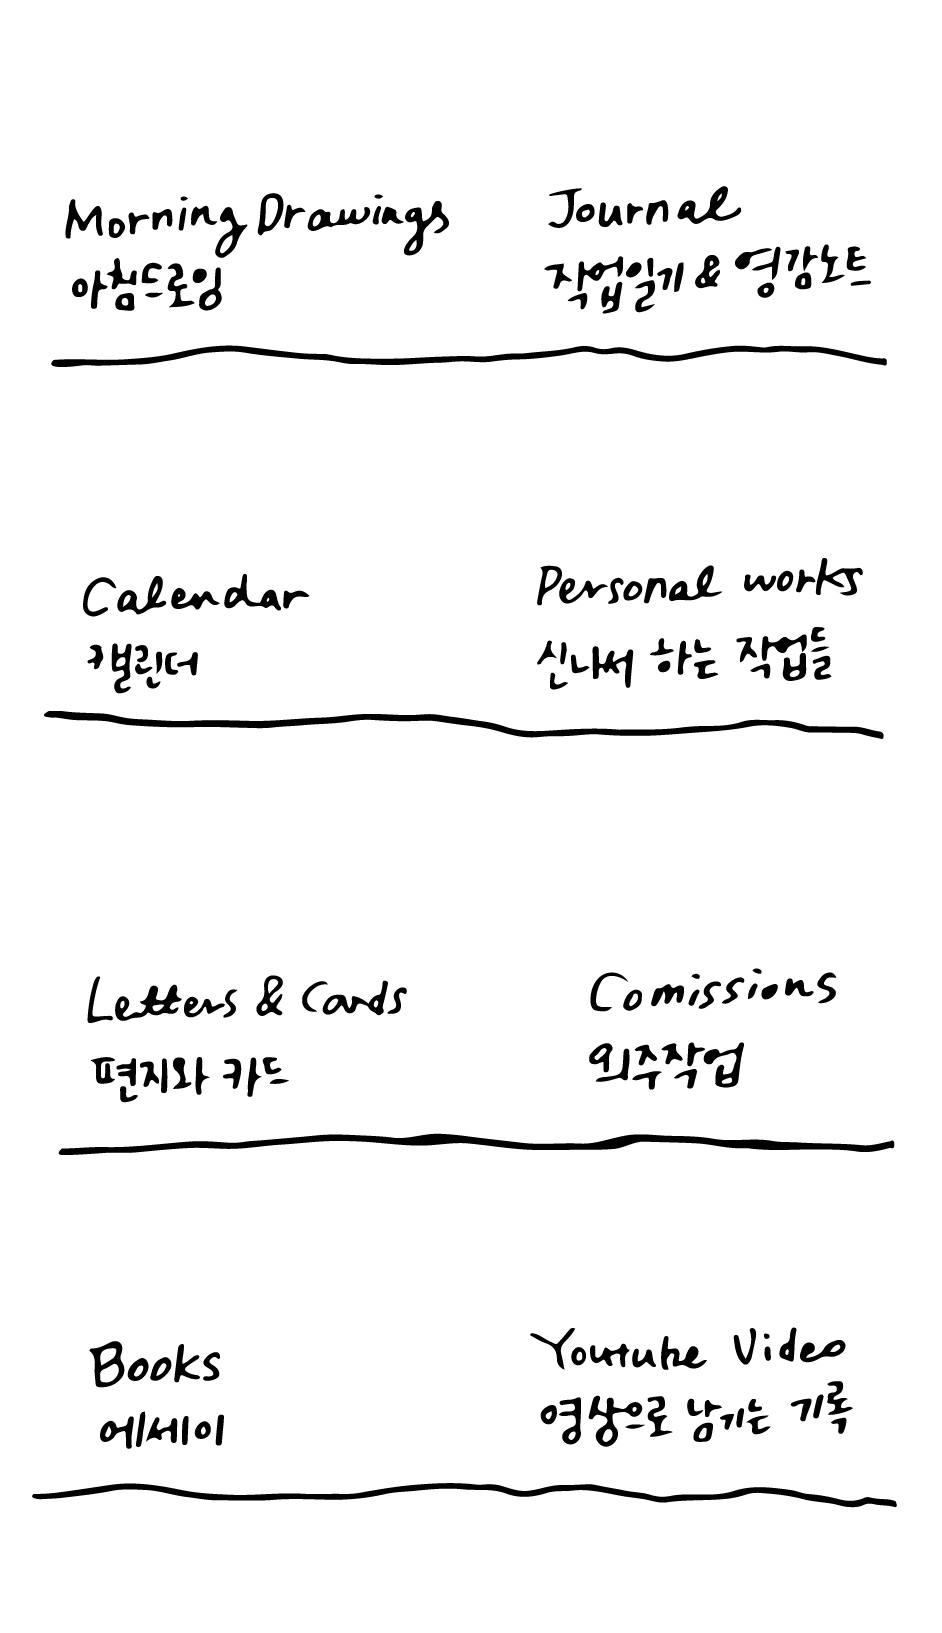 Morning Drawings
아침드로잉
Journal
작업일기 & 영감노트
Calendar
캘린더
Personal works
신나써 하는 작업들
Letters & Cards
편지와 카드
Comissions
외주작업
Books
에세이
Youtube Video
영상으로 남기는 기록